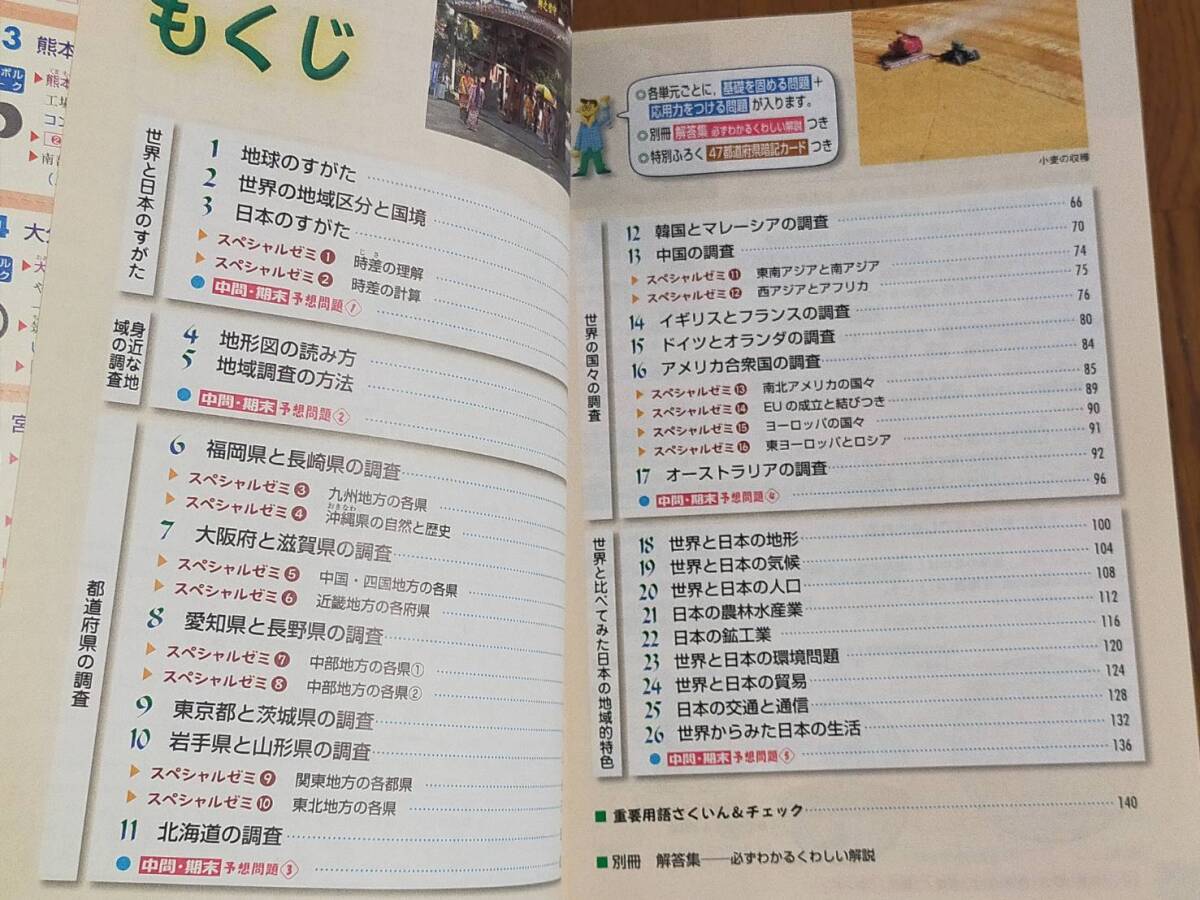 もくじ
世界と日本のすがた
1 地球のすがた
2 世界の地域区分と国境
3 日本のすがた
スペシャルゼミ1 時差の理解
じさ
スペシャルゼミ2 時差の計算
中間・期末予想問題1
身近な地域の調査
4 地形図の読み方
5 地域調査の方法
中間・期末予想問題2
都道府県の調査
6 福岡県と長崎県の調査
スペシャルゼミ3 九州地方の各県
スペシャルゼミ4 沖縄県の自然と歴史
おきなわ
7 大阪府と滋賀県の調査
スペシャルゼミ5 中国・四国地方の各県
スペシャルゼミ6 近畿地方の各府県
8 愛知県と長野県の調査
スペシャルゼミ7 中部地方の各県①
スペシャルゼミ8 中部地方の各県②
9 東京都と茨城県の調査
10 岩手県と山形県の調査
スペシャルゼミ9 関東地方の各都県
スペシャルゼミ10 東北地方の各県
11 北海道の調査
中間・期末予想問題3
各単元ごとに,基礎を固める問題+
応用力をつける問題が入ります。
別冊 解答集 必ずわかるくわしい解説 つき
特別ふろく 47都道府県暗記カード つき
小麦の収穫
世界の国々の調査
12 韓国とマレーシアの調査 66
13 中国の調査 70
スペシャルゼミ11 東南アジアと南アジア 74
スペシャルゼミ12 西アジアとアフリカ 75
14 イギリスとフランスの調査 76
15 ドイツとオランダの調査 80
16 アメリカ合衆国の調査 84
スペシャルゼミ13 南北アメリカの国々 85
スペシャルゼミ14 EUの成立と結びつき 89
スペシャルゼミ15 ヨーロッパの国々 90
スペシャルゼミ16 東ヨーロッパとロシア 91
17 オーストラリアの調査 92
中間・期末予想問題4 96
世界と比べてみた日本の地域的特色
18 世界と日本の地形 100
19 世界と日本の気候 104
20 世界と日本の人口 108
21 日本の農林水産業 112
22 日本の鉱工業 116
23 世界と日本の環境問題 120
24 世界と日本の貿易 124
25 日本の交通と通信 128
26 世界からみた日本の生活 132
中間・期末予想問題5 136
重要用語さくいん&チェック 140
別冊 解答集――必ずわかるくわしい解説